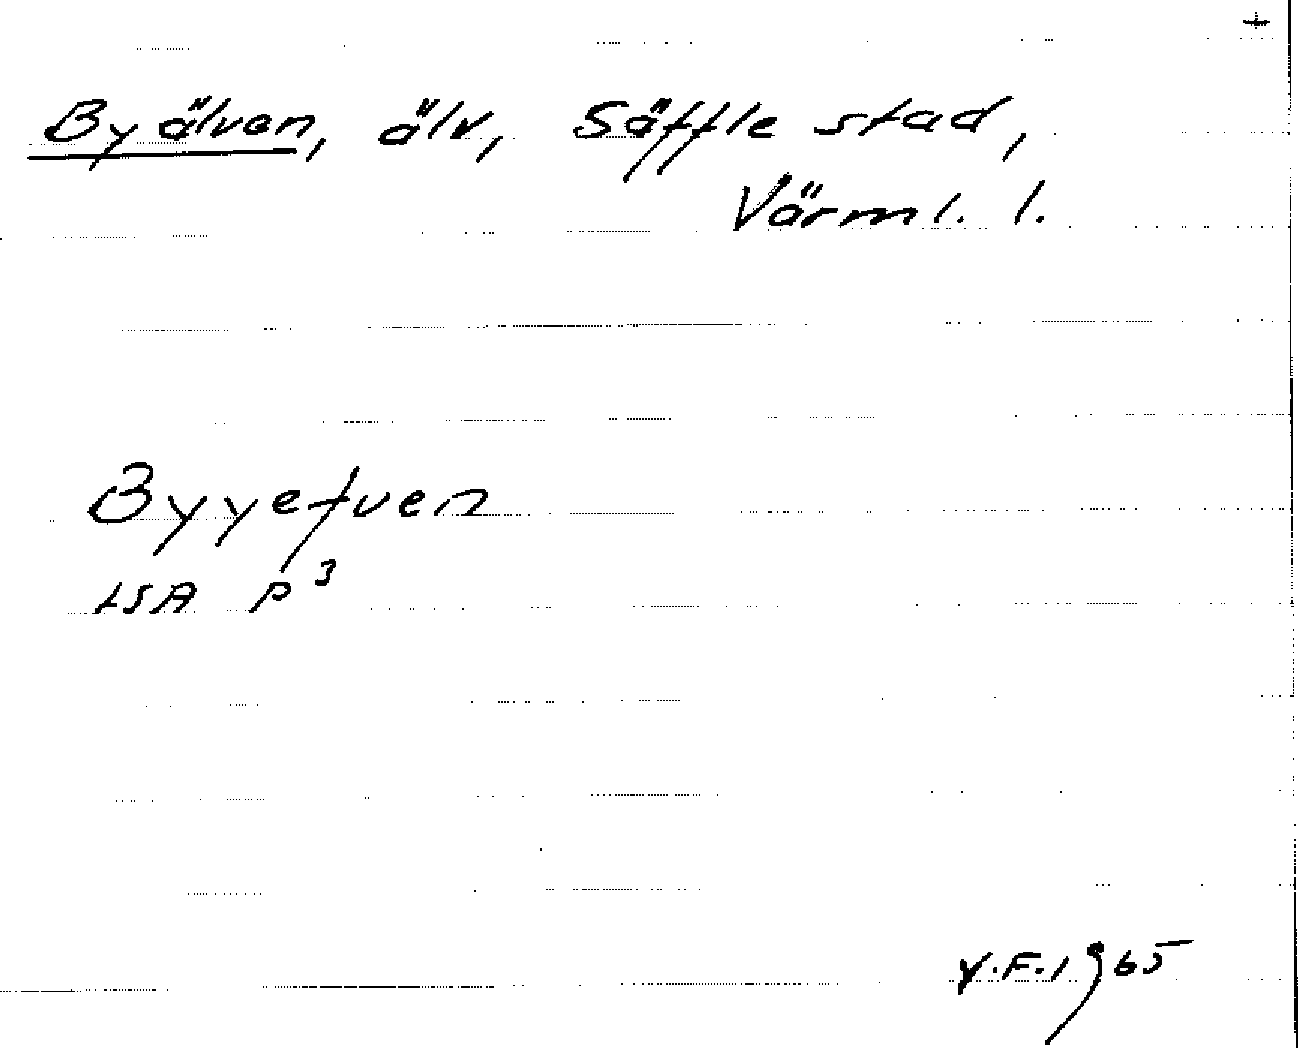 +
Byälven, älv, Säffle stad,
Värml. l.
Byyefven
LSA P³
Y.F. 1965